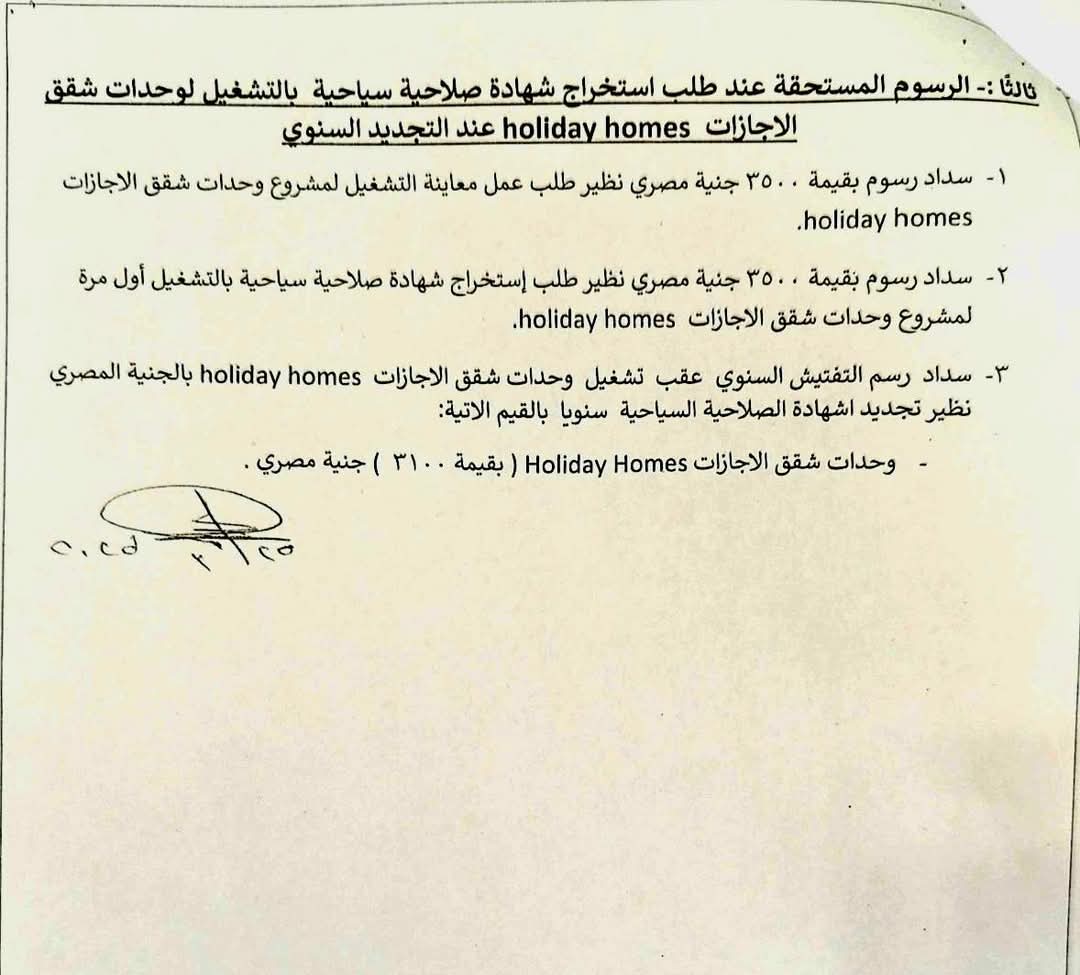 ثالثًا :- الرسوم المستحقة عند طلب استخراج شهادة صلاحية سياحية بالتشغيل لوحدات شقق
الاجازات holiday homes عند التجديد السنوي
١- سداد رسوم بقيمة ٣٥٠٠ جنية مصري نظير طلب عمل معاينة التشغيل لمشروع وحدات شقق الاجازات
holiday homes.
٢- سداد رسوم بقيمة ٣٥٠٠ جنية مصري نظير طلب إستخراج شهادة صلاحية سياحية بالتشغيل أول مرة
لمشروع وحدات شقق الاجازات holiday homes.
٣- سداد رسم التفتيش السنوي عقب تشغيل وحدات شقق الاجازات holiday homes بالجنية المصري
نظير تجديد اشهادة الصلاحية السياحية سنويا بالقيم الاتية:
- وحدات شقق الاجازات Holiday Homes ( بقيمة ٣١٠٠ ) جنية مصري .
٢٥/٣ ٢٠٢٥